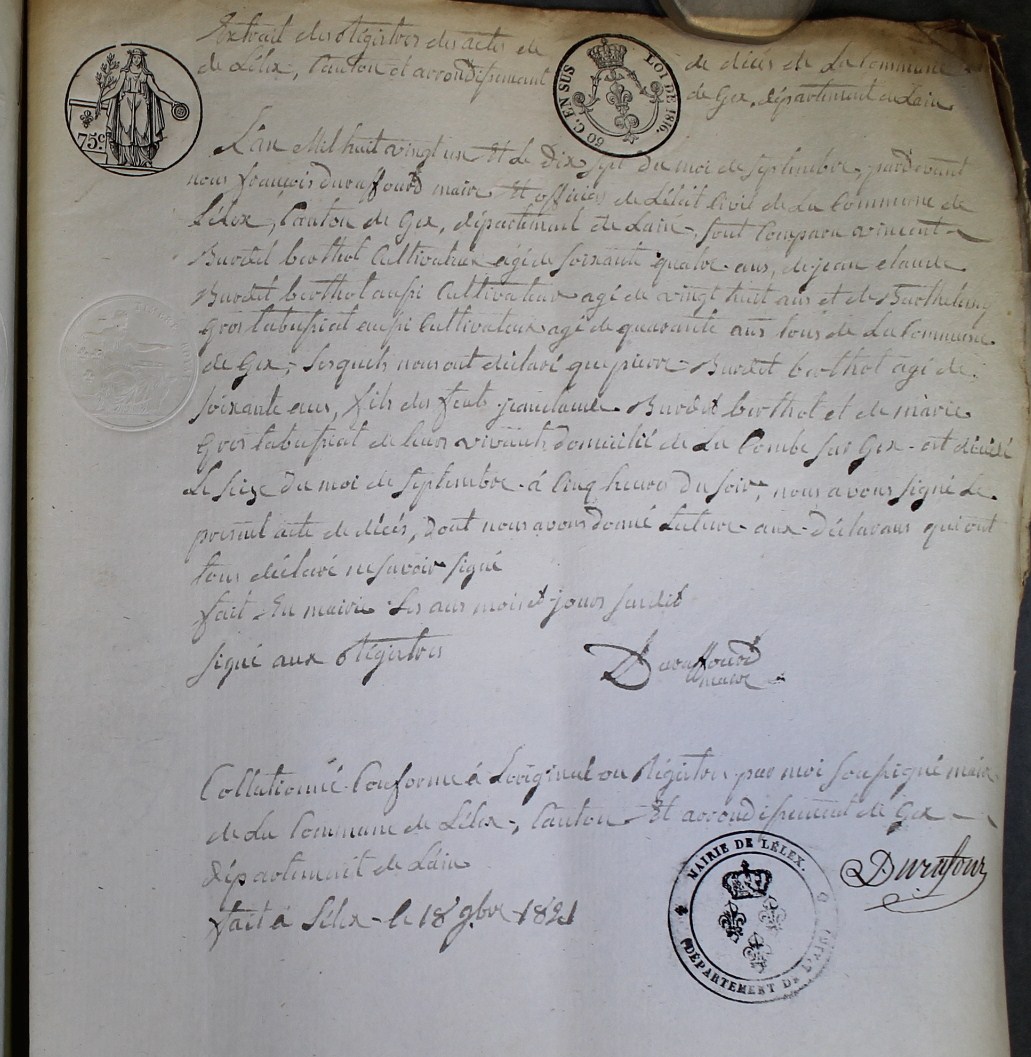 Extrait des Régistres des actes de de décés de La Commune
de Lélex, Canton et arrondissement de Gex, département de Lain
75 c.
60 C. EN SUS LOI DE 1816.
L'an Mil huit vingt un Et Le Dix sept Du moi de septembre, pardevant
nous françois Duraffourd maire Et officier de Létat Civil de La Commune de
Lélex, Canton de Gex, département de Lain, sont Comparu vincent
Burdet berthot Cultivateur agé de soixante quatre ans, de jean claude
Burdet berthot aussi Cultivateur agé de vingt huit ans et de Barthelemy
gros aussi Cultivateur agé de quarante ans tous de La Commune
de Gex, Lesquels nous ont déclaré que pierre Burdet berthot agé de
soixante ans, fils des feuts jean claude Burdet berthot et de marie
gros de leurs vivants domicilié de La Combe sur Gex est décédé
Le seize Du moi de septembre à Cinq heures Du soir, nous avons signé Le
présent acte de décés, Dont nous avons donné Lecture aux Déclarans qui ont
tous déclaré ne savoir signé
fait En mairie Les ans mois et jours susdit
signé aux Régistres Duraffourd
maire
Collationné Conforme à Loriginal ou Régistre par moi soussigné maire
de La Commune de Lélex, Canton Et arrondissement de Gex
département de Lain
fait à Lélex le 18 9bre 1821
Durafour
MAIRIE DE LÉLEX.
DÉPARTEMENT DE L'AIN